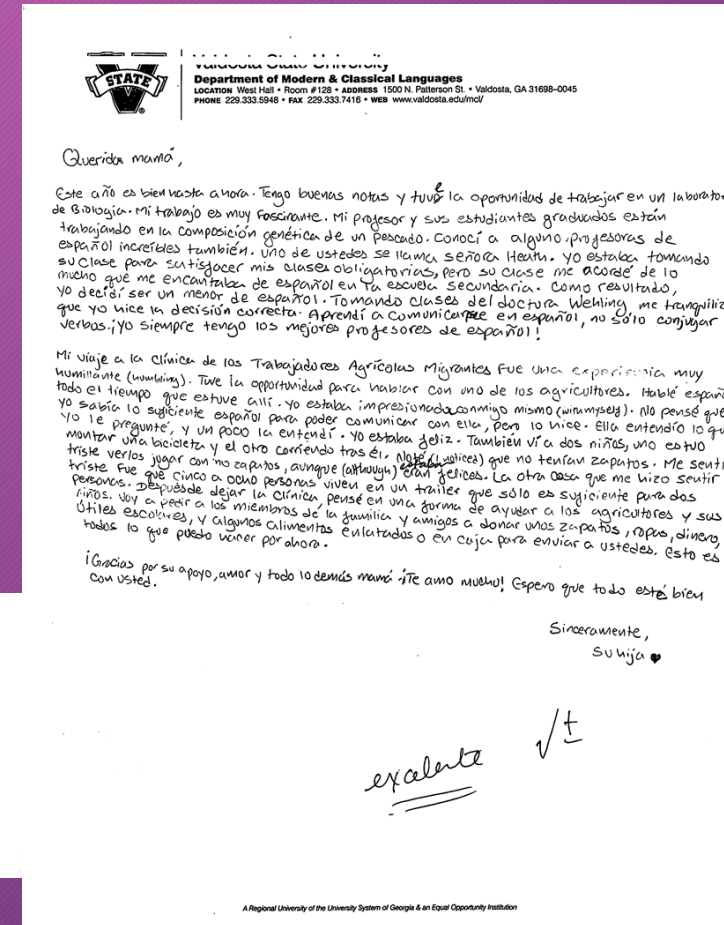 STATE
V
Valdosta State University
Department of Modern & Classical Languages
LOCATION West Hall • Room #128 • ADDRESS 1500 N. Patterson St. • Valdosta, GA 31698–0045
PHONE 229.333.5948 • FAX 229.333.7416 • WEB www.valdosta.edu/mcl/
Querida mamá,
Este año es bien hasta ahora. Tengo buenas notas y tuve la oportunidad de trabajar en un laborator
de Biología. Mi trabajo es muy fascinante. Mi profesor y sus estudiantes graduados están
trabajando en la composición genética de un pescado. Conocí a alguno profesoras de
español increíbles también. uno de ustedes se llama señora Heath. Yo estaba tomando
su clase para satisfacer mis clases obligatorias, pero su clase me acordé de lo
mucho que me encantaba de español en la escuela secundaria. Como resultado,
yo decidí ser un menor de español. Tomando clases del doctura Wehling me tranquiliz
que yo hice la decisión correcta. Aprendí a comunicarse en español, no sólo conjugar
verbos. ¡Yo siempre tengo los mejores profesores de español!
Mi viaje a la clínica de los Trabajadores Agrícolas Migrantes fue una experiencia muy
humillante (humbling). Tuve la opportunidad para hablar con uno de los agricultores. Hablé españ
todo el tiempo que estuve allí. Yo estaba impresionada conmigo mismo (with myself). No pensé que
yo sabía lo suficiente español para poder comunicar con ella, pero lo hice. Ella entendío lo qu
Yo le pregunté, y un poco la entendí. Yo estaba feliz. También ví a dos niños, uno estuo
montar una bicicleta y el otro corriendo tras él. Noté (I noticed) que no tenían zapatos. Me sentí
triste verlos jugar con no zapatos, aunque (although) eran felices. La otra cosa que me hizo sentir
triste fue que cinco a ocho personas viven en un trailer que sólo es suficiente para dos
personas. Después de dejar la clínica, pensé en una forma de ayudar a los agricultores y sus
niños. Voy a pedir a los miembros de la familia y amigos a donar unos zapatos, ropas, dinero,
útiles escolares, y algunos alimentos enlatados o en caja para enviar a ustedes. Esto es
todos lo que puedo hacer por ahora.
¡Gracias por su apoyo, amor y todo lo demás mamá. ¡Te amo mucho! Espero que todo esté bien
con usted.
Sinceramente,
Su hija
excelente √+
A Regional University of the University System of Georgia & an Equal Opportunity Institution